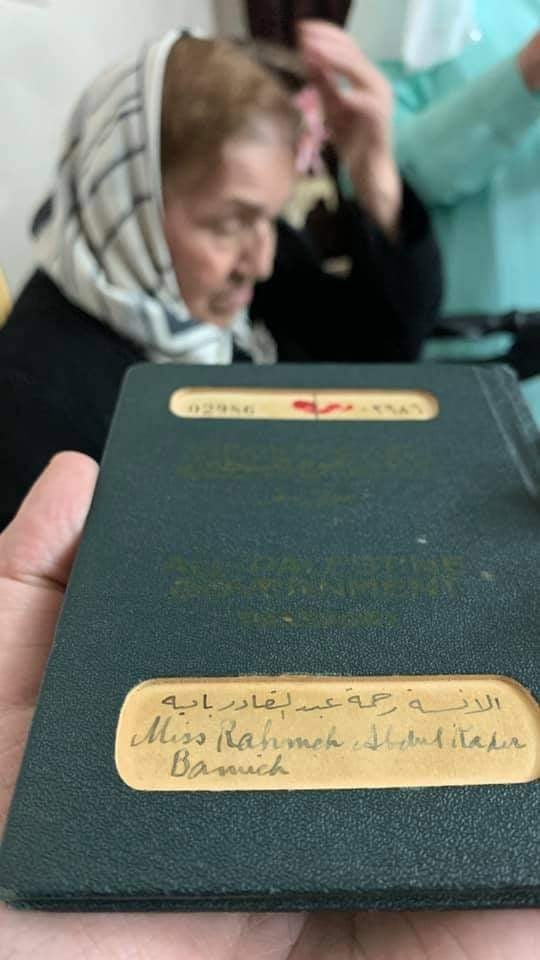 02986 ٠٢٩٨٦
ALL-PALESTINE
GOVERNMENT
الانسة رحمة عبد القادر باميه
Miss Rahmeh Abdul Kader
Bamieh